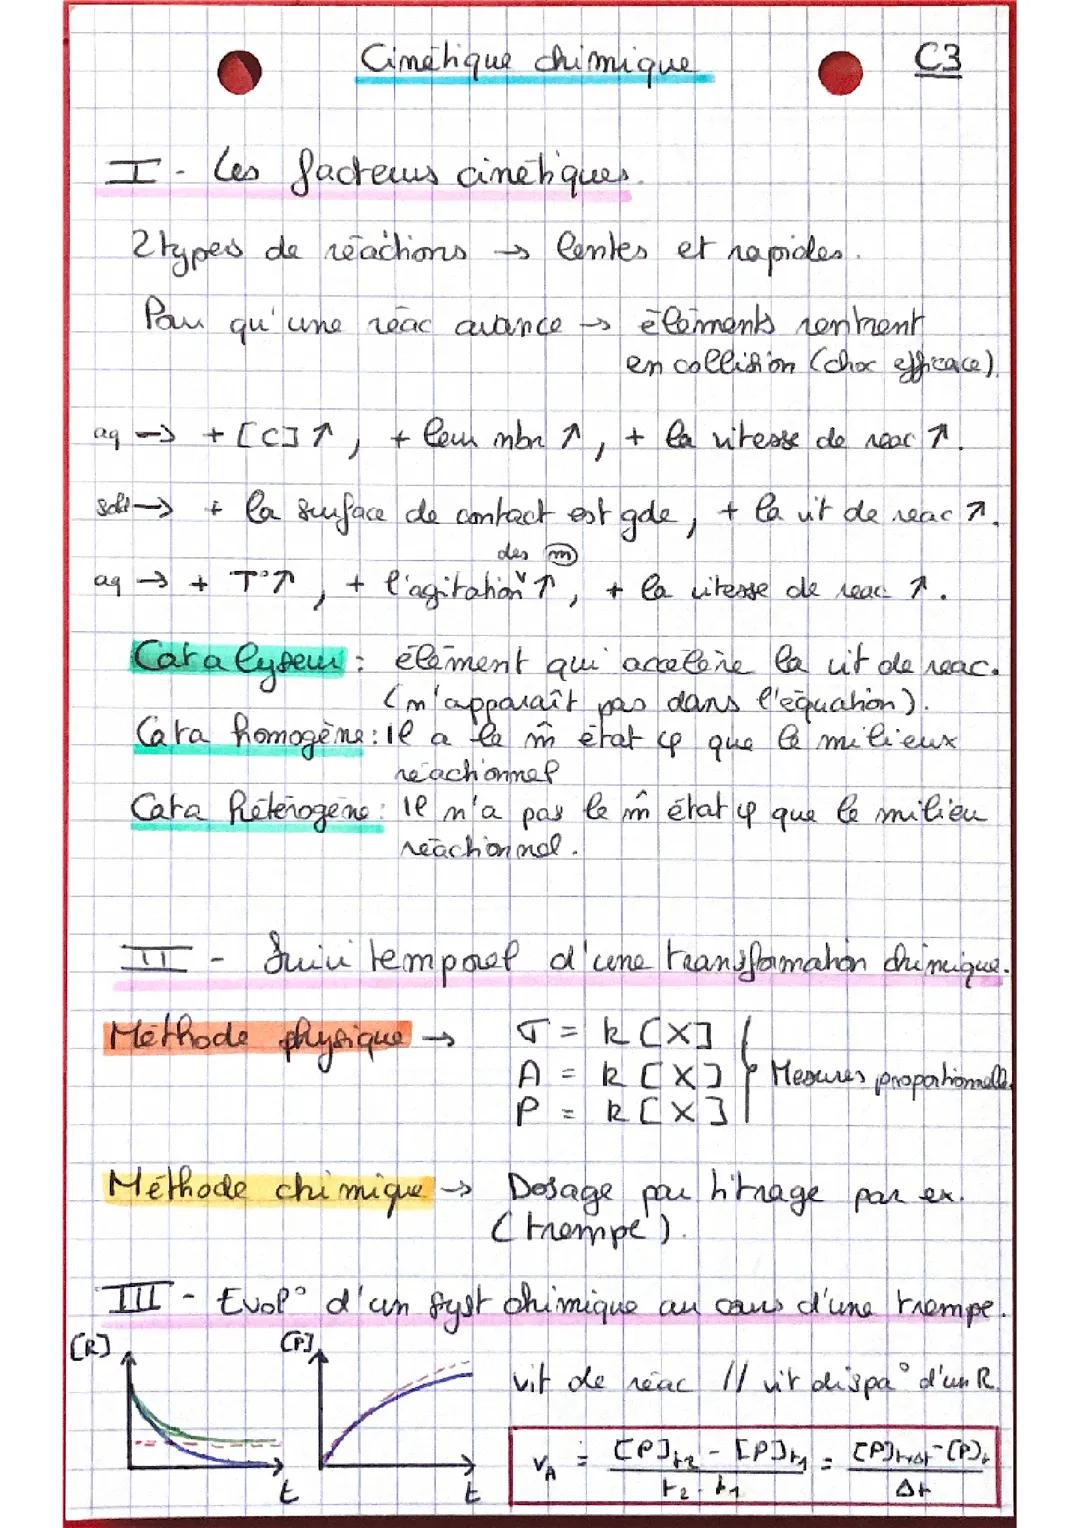 Cinétique chimique
C3
I - Les facteurs cinétiques.
2 types de réactions → lentes et rapides.
Pour qu'une réac avance → éléments rentrent
en collision (choc efficace).
aq → + [C] ↑, + leur nbr ↑, + la vitesse de reac ↑.
solt → + la surface de contact est gde, + la vit de reac ↑.
des m
aq → + T° ↑, + l'agitation ↑, + la vitesse de reac ↑.
Catalyseur : élément qui accélère la vit de reac.
(n'apparaît pas dans l'équation).
Cata homogène : Il a le m̂ état φ que le milieux
réactionnel
Cata hétérogène : Il n'a pas le m̂ état φ que le milieu
réactionnel.
II - Suivi temporel d'une transformation chimique.
Méthode physique → σ = k [X]
A = k [X] } Mesures proportionnelles
P = k [X]
Méthode chimique → Dosage par titrage par ex.
(trempe).
III - Evol° d'un syst chimique au cours d'une trempe.
[R] [P]
vit de réac // vit dispa° d'un R.
v_A = [P]t2 - [P]t1 / t2 - t1 = [P]t+Δt - [P]t / Δt
t t